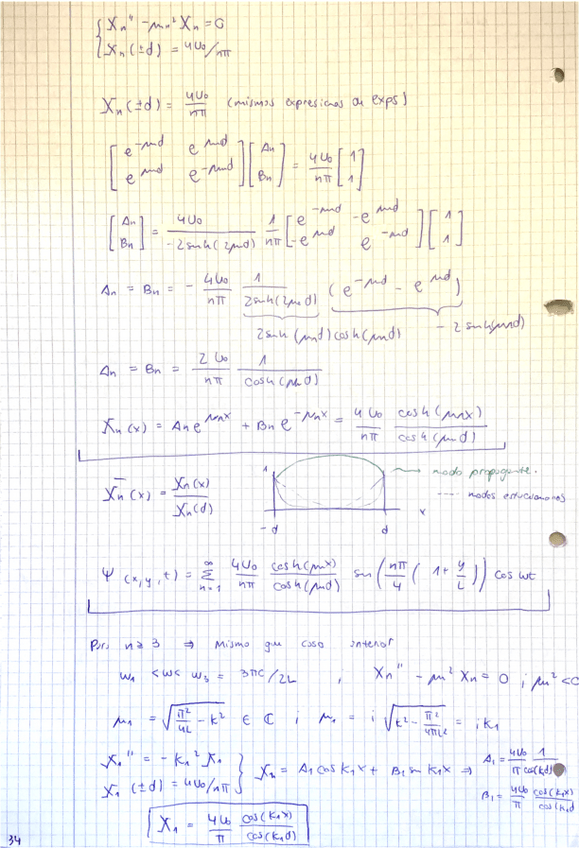 { Xn'' - μn² Xn = 0
{ Xn(±d) = 4U0/nπ
Xn(±d) = 4U0/nπ (mismas expresiones de exps)
[ e^-μnd e^μnd ; e^μnd e^-μnd ] [ An ; Bn ] = 4U0/nπ [ 1 ; 1 ]
[ An ; Bn ] = 4U0/-2sinh(2μnd) 1/nπ [ e^-μnd -e^μnd ; -e^μnd e^-μnd ] [ 1 ; 1 ]
An = Bn = - 4U0/nπ 1/2sinh(2μnd) (e^-μnd - e^μnd)
2sinh(μnd)cosh(μnd) - 2sinh(μnd)
An = Bn = 2U0/nπ 1/cosh(μnd)
Xn(x) = An e^μnx + Bn e^-μnx = 4U0/nπ cosh(μnx)/cosh(μnd)
X̄n(x) = Xn(x)/Xn(d)
1
modo propagante.
--- modos estacionarios
-d d x
Ψ(x,y,t) = Σ_{n=1}^∞ 4U0/nπ cosh(μnx)/cosh(μnd) sin(nπ/4 (1+ y/L)) cos wt
Para n≥3 ⇒ mismo que caso anterior
w1 < w < w3 = 3πc/2L , Xn'' - μn² Xn = 0 ; μn² < 0
μ1 = √(π²/4L - k²) ∈ ℂ ; μ1 = i √(k² - π²/4πL²) = i k1
X1'' = -k1² X1
X1(±d) = 4U0/nπ } X1 = A1 cos k1x + B1 sin k1x ⇒ A1 = 4U0/π 1/cos(k1d)
B1 = 4U0/π cos(k1x)/cos(k1d
X1 = 4U0/π cos(k1x)/cos(k1d)
34